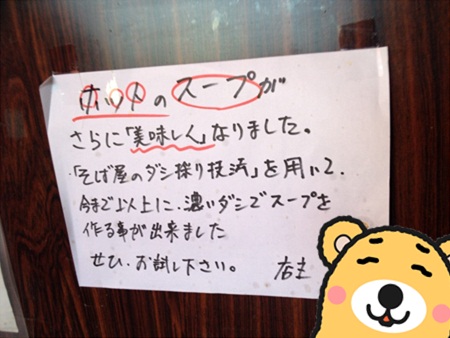 ホットのスープが
さらに「美味しく」なりました。
「そば屋のダシ採り技法」を用いて、
今まで以上に、濃いダシでスープを
作る事が出来ました
ぜひ、お試し下さい。 店主